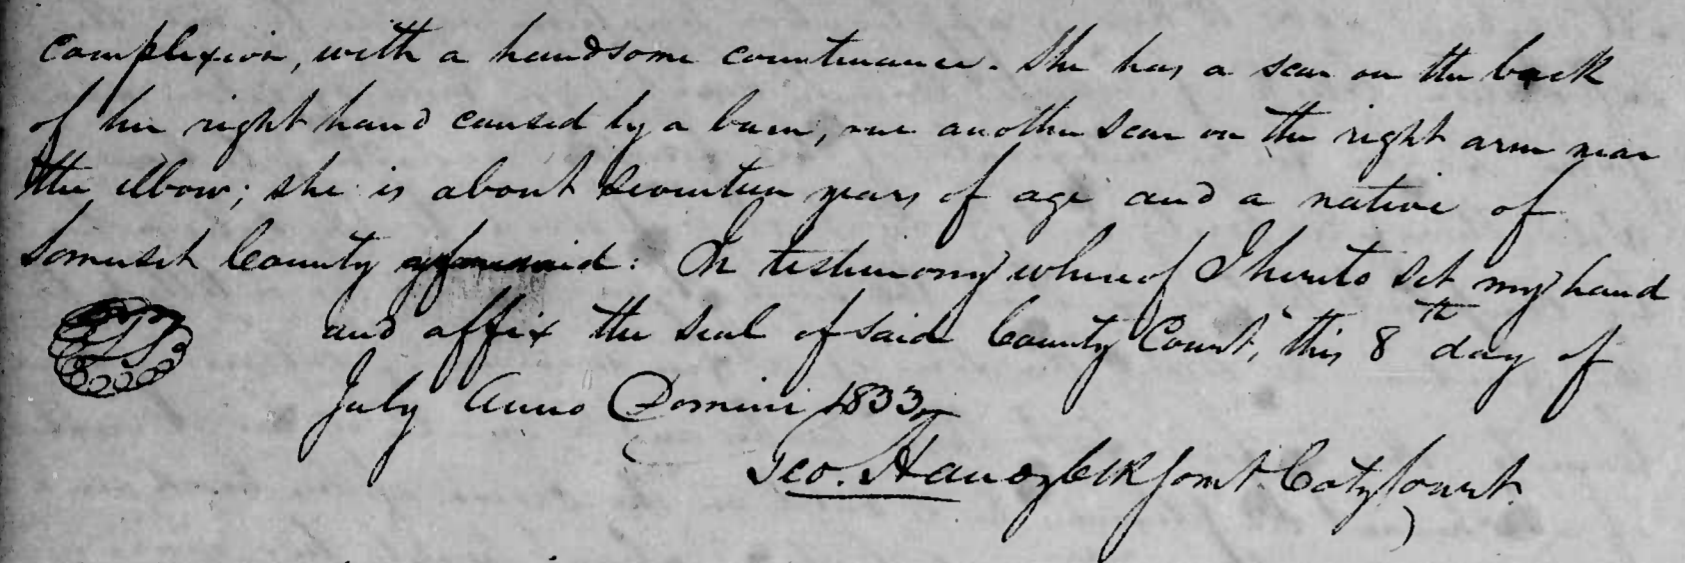 complexion, with a handsome countenance. She has a scar on the back
of her right hand caused by a burn, one another scar on the right arm near
the elbow; she is about seventeen years of age and a native of
Somerset County aforesaid: In testimony whereof I hereto set my hand
and affix the seal of said County Court, this 8th day of
July Anno Domini 1833
Geo. Handy Clk Somt. Coty Court.